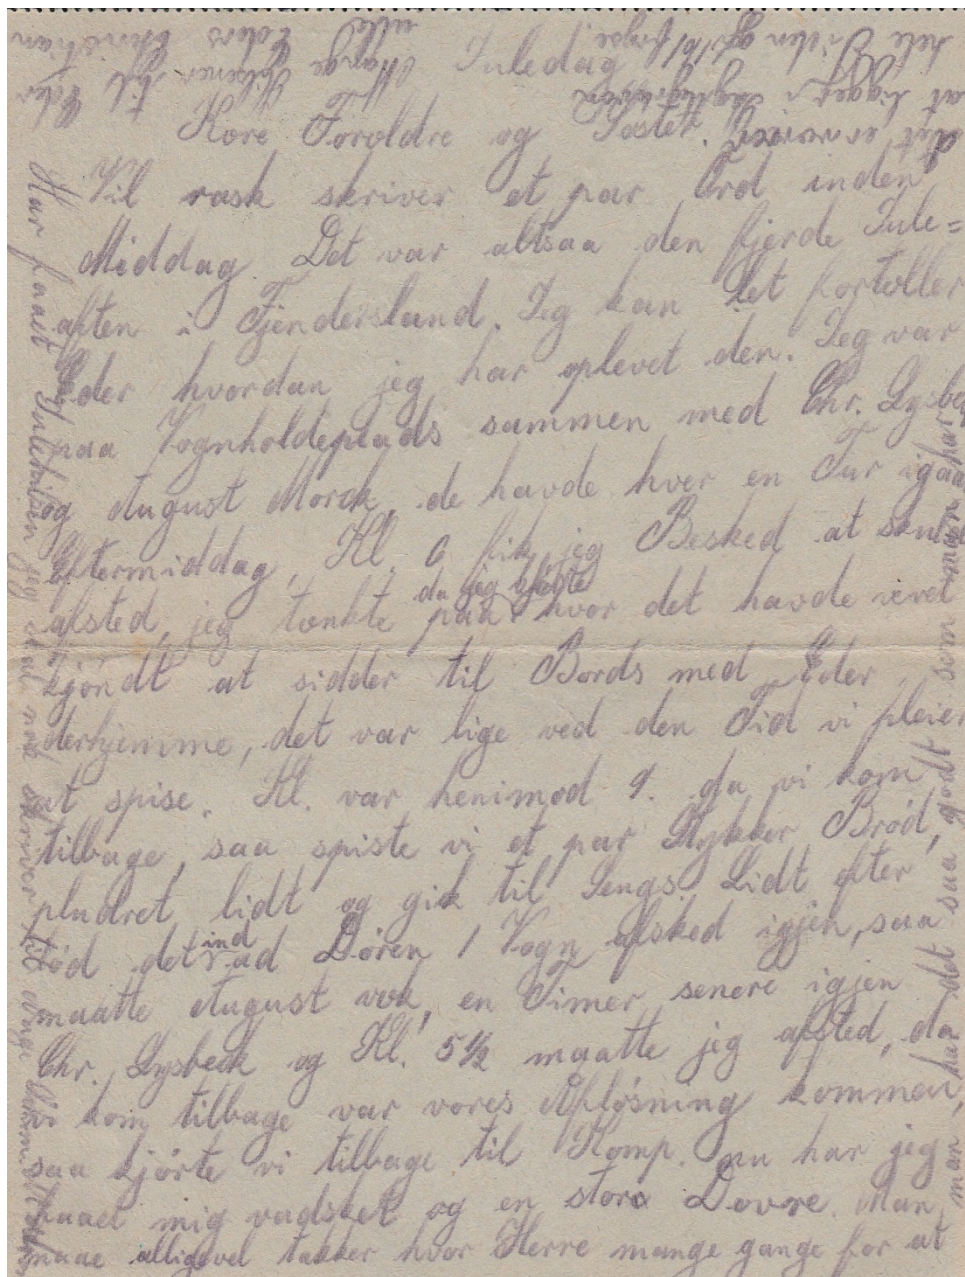 Juledag
Kære Forældre og Søster.
Vil rask skriver et par Ord inden
Middag. Det var altsaa den fjerde Jule=
aften i Fjendersland. Jeg kan let fortæller
Eder hvordan jeg har oplevet den. Jeg var
paa Vognholdeplads sammen med Chr. Lysbeck
og August Morck, de havde hver en Tur igaar
Eftermiddag, Kl. 6 fik jeg Besked at skulde
da jeg kjørte
afsted, jeg tænkte paa hvor det havde vævet
kjøndt at sidder til Bords med Eder
derhjemme, det var lige ved den Tid vi pleier
at spise. Kl. var henimod 9. da vi kom
tilbage, saa spiste vi et par Stykker Brød,
pludret lidt og gik til Sengs. Lidt efter
lød det ind ad Døren 1 Vogn afsked igjen, saa
maatte August væk, en Timer senere igjen
Chr. Lysbeck og Kl. 5½ maatte jeg afsted, da
vi kom tilbage var vores Afløsning kommen,
saa kjørte vi tilbage til Komp. nu har jeg
faaet mig vadsket og en stora Dovre. Man
maae alligevel takker hvor Herre mange gange for at
man har det saa godt som man har
det
at ligget i
hele Tiden
Mange Hilsener til Eder
alle Eders Christian
Har faaet Julehilsen jeg skal nok skriver til